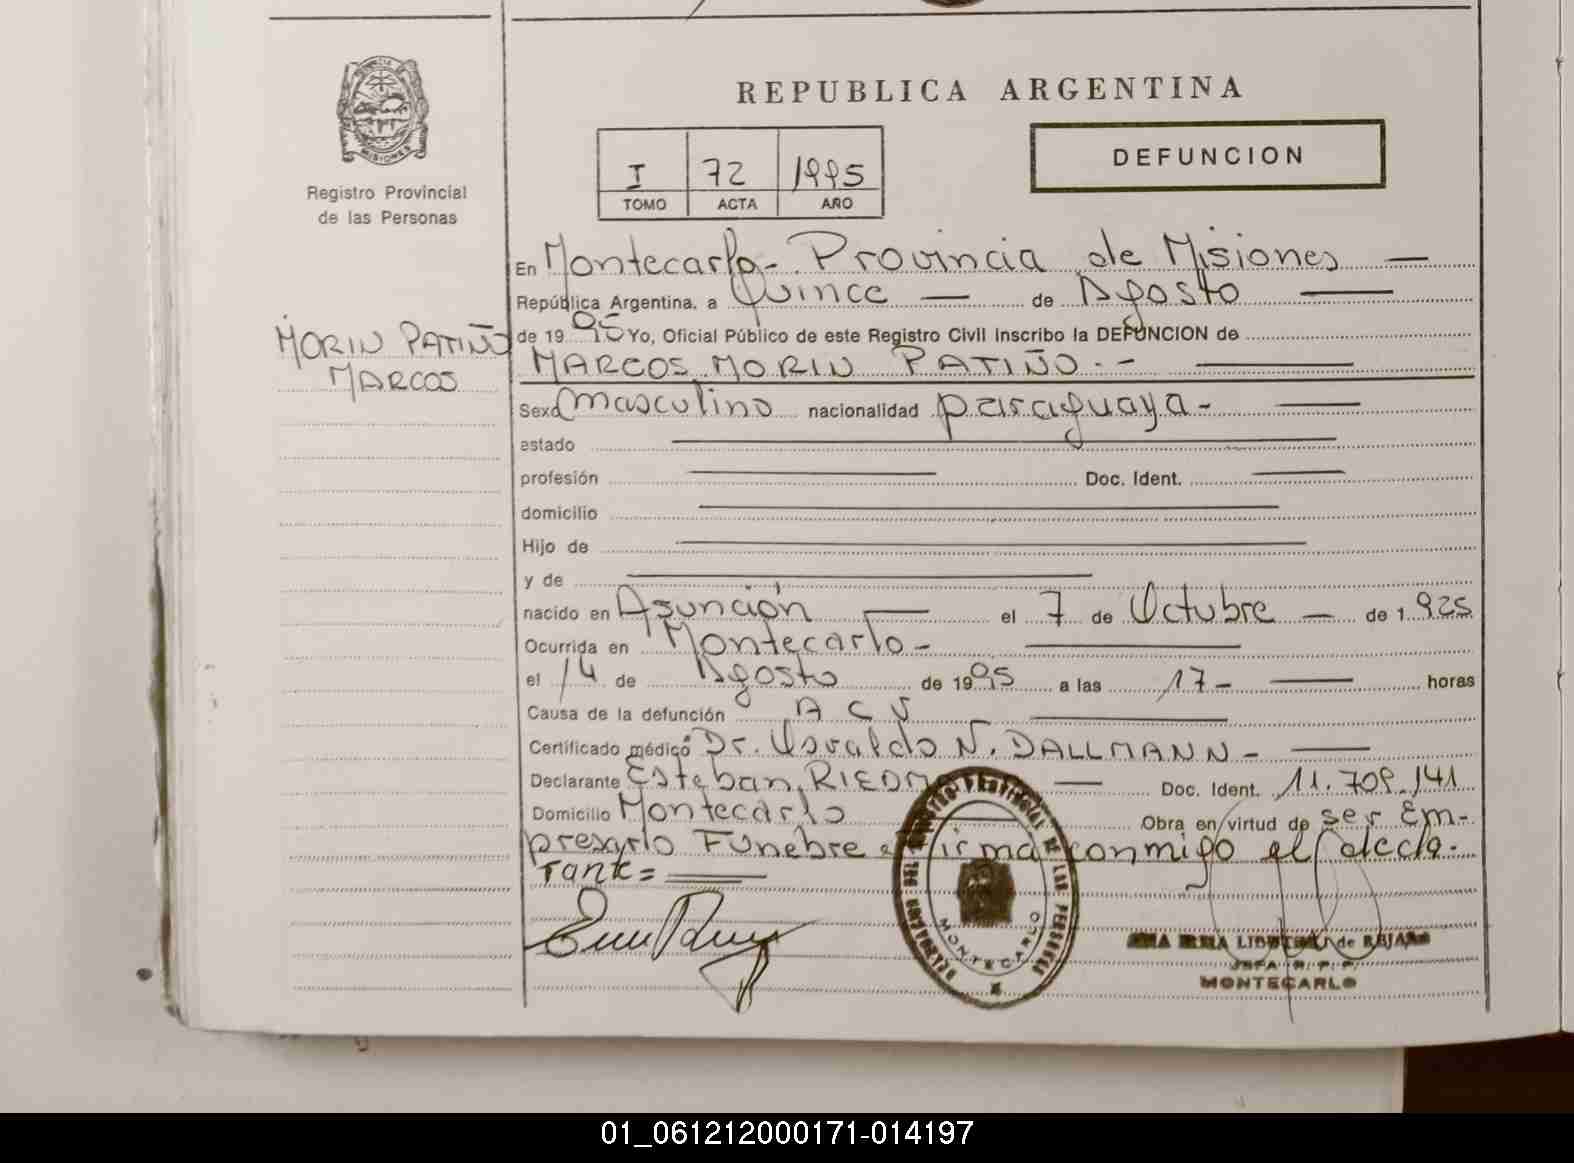 REPUBLICA ARGENTINA
DEFUNCION
I 72 1995
TOMO ACTA AÑO
MISIONES
Registro Provincial
de las Personas
MORIN PATIÑO
MARCOS
En Montecarlo - Provincia de Misiones
República Argentina, a Quince de Agosto
de 1995 Yo, Oficial Público de este Registro Civil Inscribo la DEFUNCION de
MARCOS MORIN PATIÑO.-
Sexo masculino nacionalidad paraguaya-
estado
profesión Doc. Ident.
domicilio
Hijo de
y de
nacido en Asunción el 7 de Octubre de 1.925
Ocurrida en Montecarlo-
el 14 de Agosto de 1995 a las 17- horas
Causa de la defunción A C V
Certificado médico Dr. Osvaldo N. DALLMANN-
Declarante Esteban Doc. Ident. 11.709.141
Domicilio Montecarlo Obra en virtud de ser Em-
presario Funebre Firma conmigo el decla-
rante=
MONTECARLO
de REJALA
JEFA R. P. P.
MONTECARLO
01_061212000171-014197